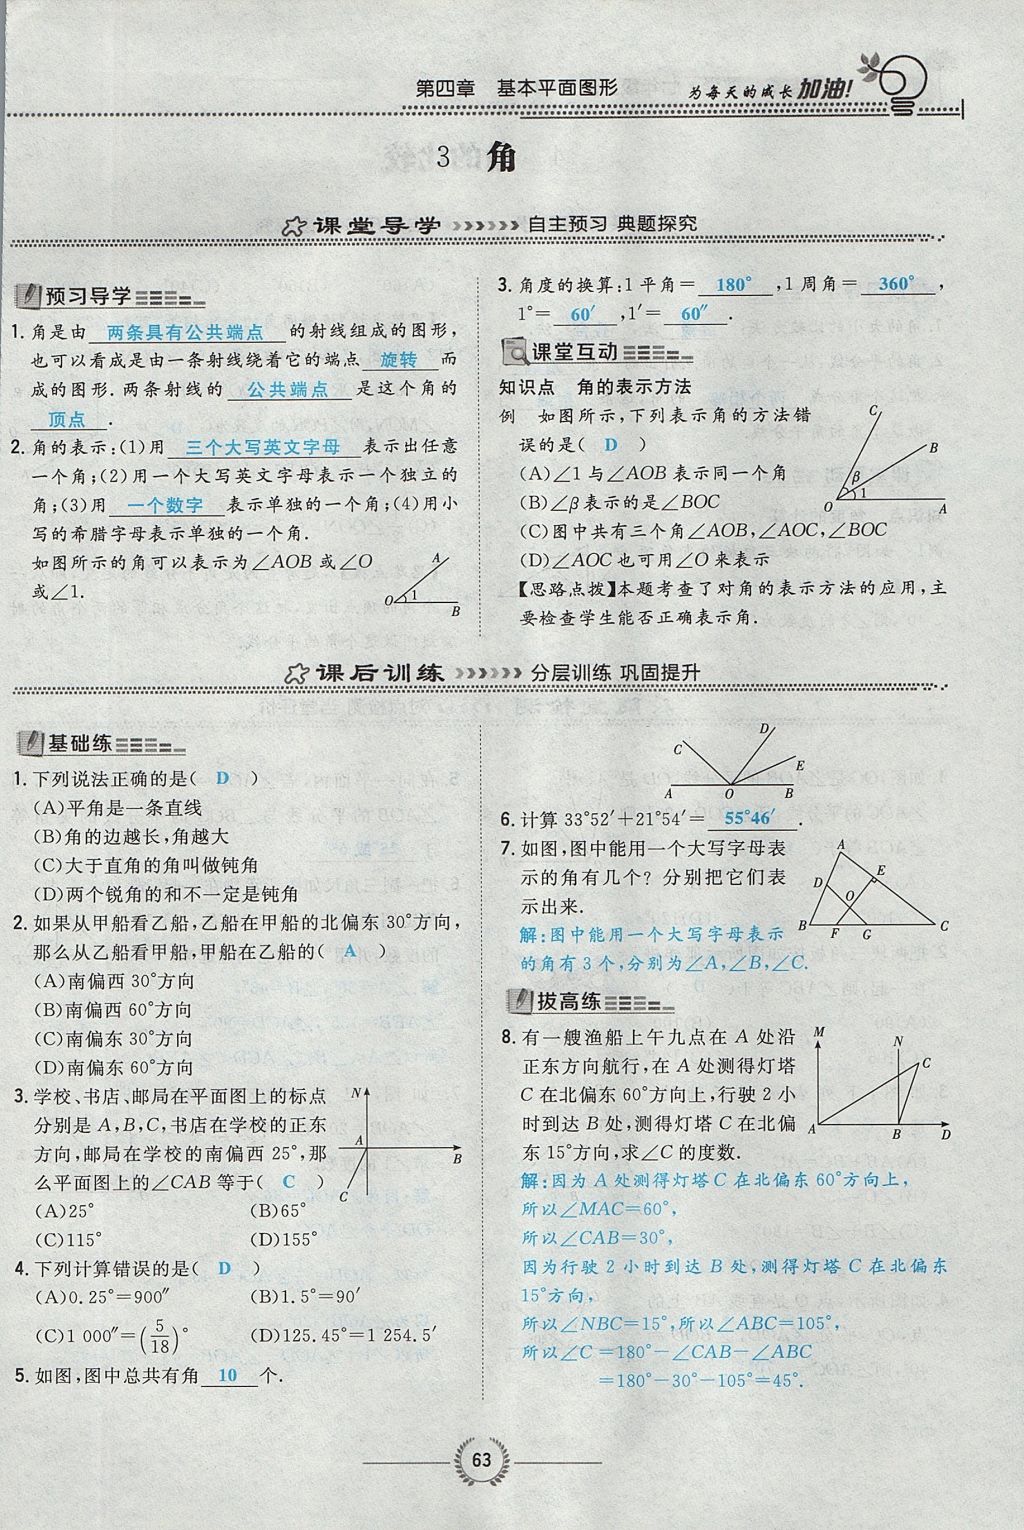 第四章 基本平面图形
为每天的成长加油!
3 角
课堂导学 自主预习 典题探究
预习导学
1.角是由 两条具有公共端点 的射线组成的图形,
也可以看成是由一条射线绕着它的端点 旋转 而
成的图形.两条射线的 公共端点 是这个角的
顶点 .
2.角的表示:(1)用 三个大写英文字母 表示出任意
一个角;(2)用一个大写英文字母表示一个独立的
角;(3)用 一个数字 表示单独的一个角;(4)用小
写的希腊字母表示单独的一个角.
如图所示的角可以表示为∠AOB或∠O
或∠1.
A
O 1
B
3.角度的换算:1平角= 180° ,1周角= 360° ,
1°= 60′ ,1′= 60″ .
课堂互动
知识点 角的表示方法
例 如图所示,下列表示角的方法错
误的是( D )
(A)∠1与∠AOB表示同一个角
(B)∠β表示的是∠BOC
(C)图中共有三个角∠AOB,∠AOC,∠BOC
(D)∠AOC也可用∠O来表示
C
B
β
1
O A
【思路点拨】本题考查了对角的表示方法的应用,主
要检查学生能否正确表示角.
课后训练 分层训练 巩固提升
基础练
1.下列说法正确的是( D )
(A)平角是一条直线
(B)角的边越长,角越大
(C)大于直角的角叫做钝角
(D)两个锐角的和不一定是钝角
2.如果从甲船看乙船,乙船在甲船的北偏东30°方向,
那么从乙船看甲船,甲船在乙船的( A )
(A)南偏西30°方向
(B)南偏西60°方向
(C)南偏东30°方向
(D)南偏东60°方向
3.学校、书店、邮局在平面图上的标点
分别是A,B,C,书店在学校的正东
方向,邮局在学校的南偏西25°,那
么平面图上的∠CAB等于( C )
(A)25° (B)65°
(C)115° (D)155°
N
A
B
C
4.下列计算错误的是( D )
(A)0.25°=900″ (B)1.5°=90′
(C)1 000″=(5/18)° (D)125.45°=1 254.5′
5.如图,图中总共有角 10 个.
C
D
E
A O B
6.计算33°52′+21°54′= 55°46′ .
7.如图,图中能用一个大写字母表
示的角有几个?分别把它们表
示出来.
解:图中能用一个大写字母表示
的角有3个,分别为∠A,∠B,∠C.
A
D E
O
B F G C
拔高练
8.有一艘渔船上午九点在A处沿
正东方向航行,在A处测得灯塔
C在北偏东60°方向上,行驶2小
时到达B处,测得灯塔C在北偏
东15°方向,求∠C的度数.
M
N
C
A B D
解:因为A处测得灯塔C在北偏东60°方向上,
所以∠MAC=60°,
所以∠CAB=30°,
因为行驶2小时到达B处,测得灯塔C在北偏东
15°方向,
所以∠NBC=15°,所以∠ABC=105°,
所以∠C=180°-∠CAB-∠ABC
=180°-30°-105°=45°.
63